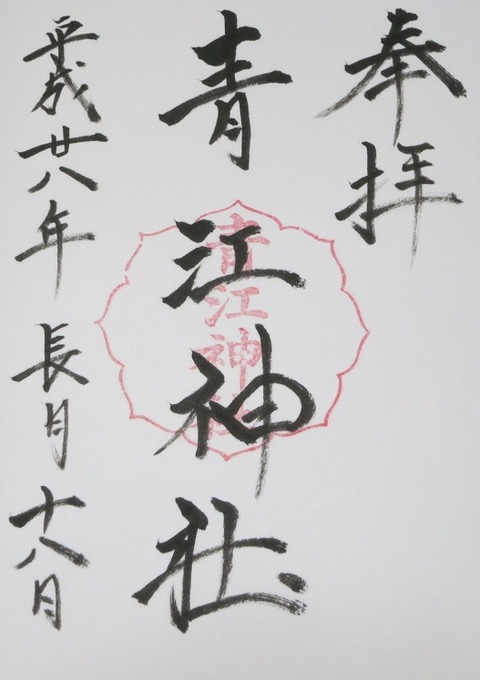 奉拝
青江神社
青江神社
平成廿八年長月十八月